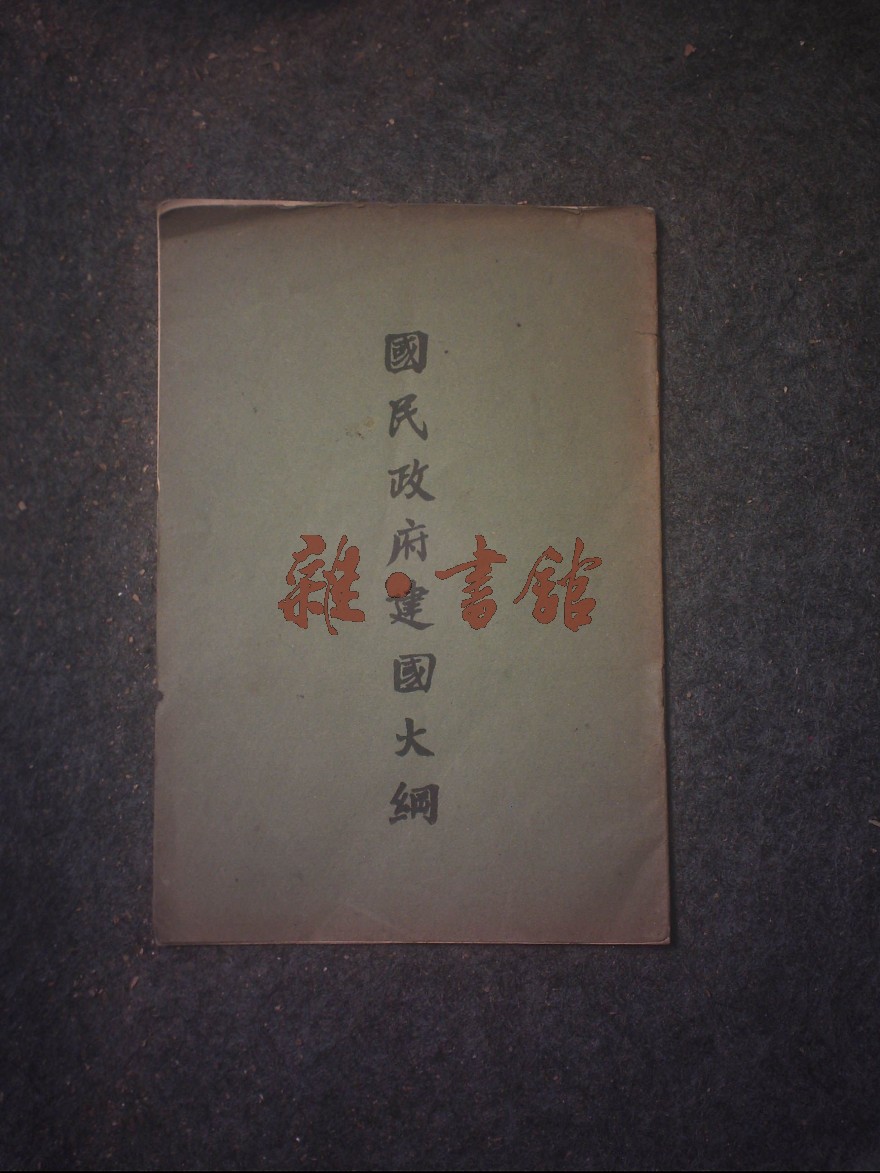 國民政府建國大綱
雜·書館